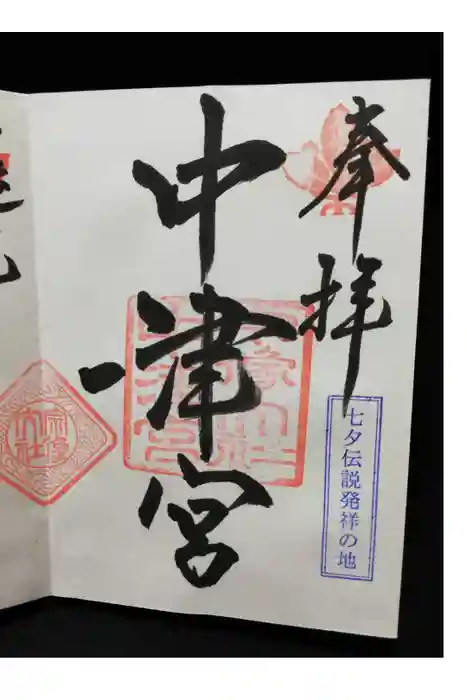 奉拝
七夕伝説発祥の地
中津宮